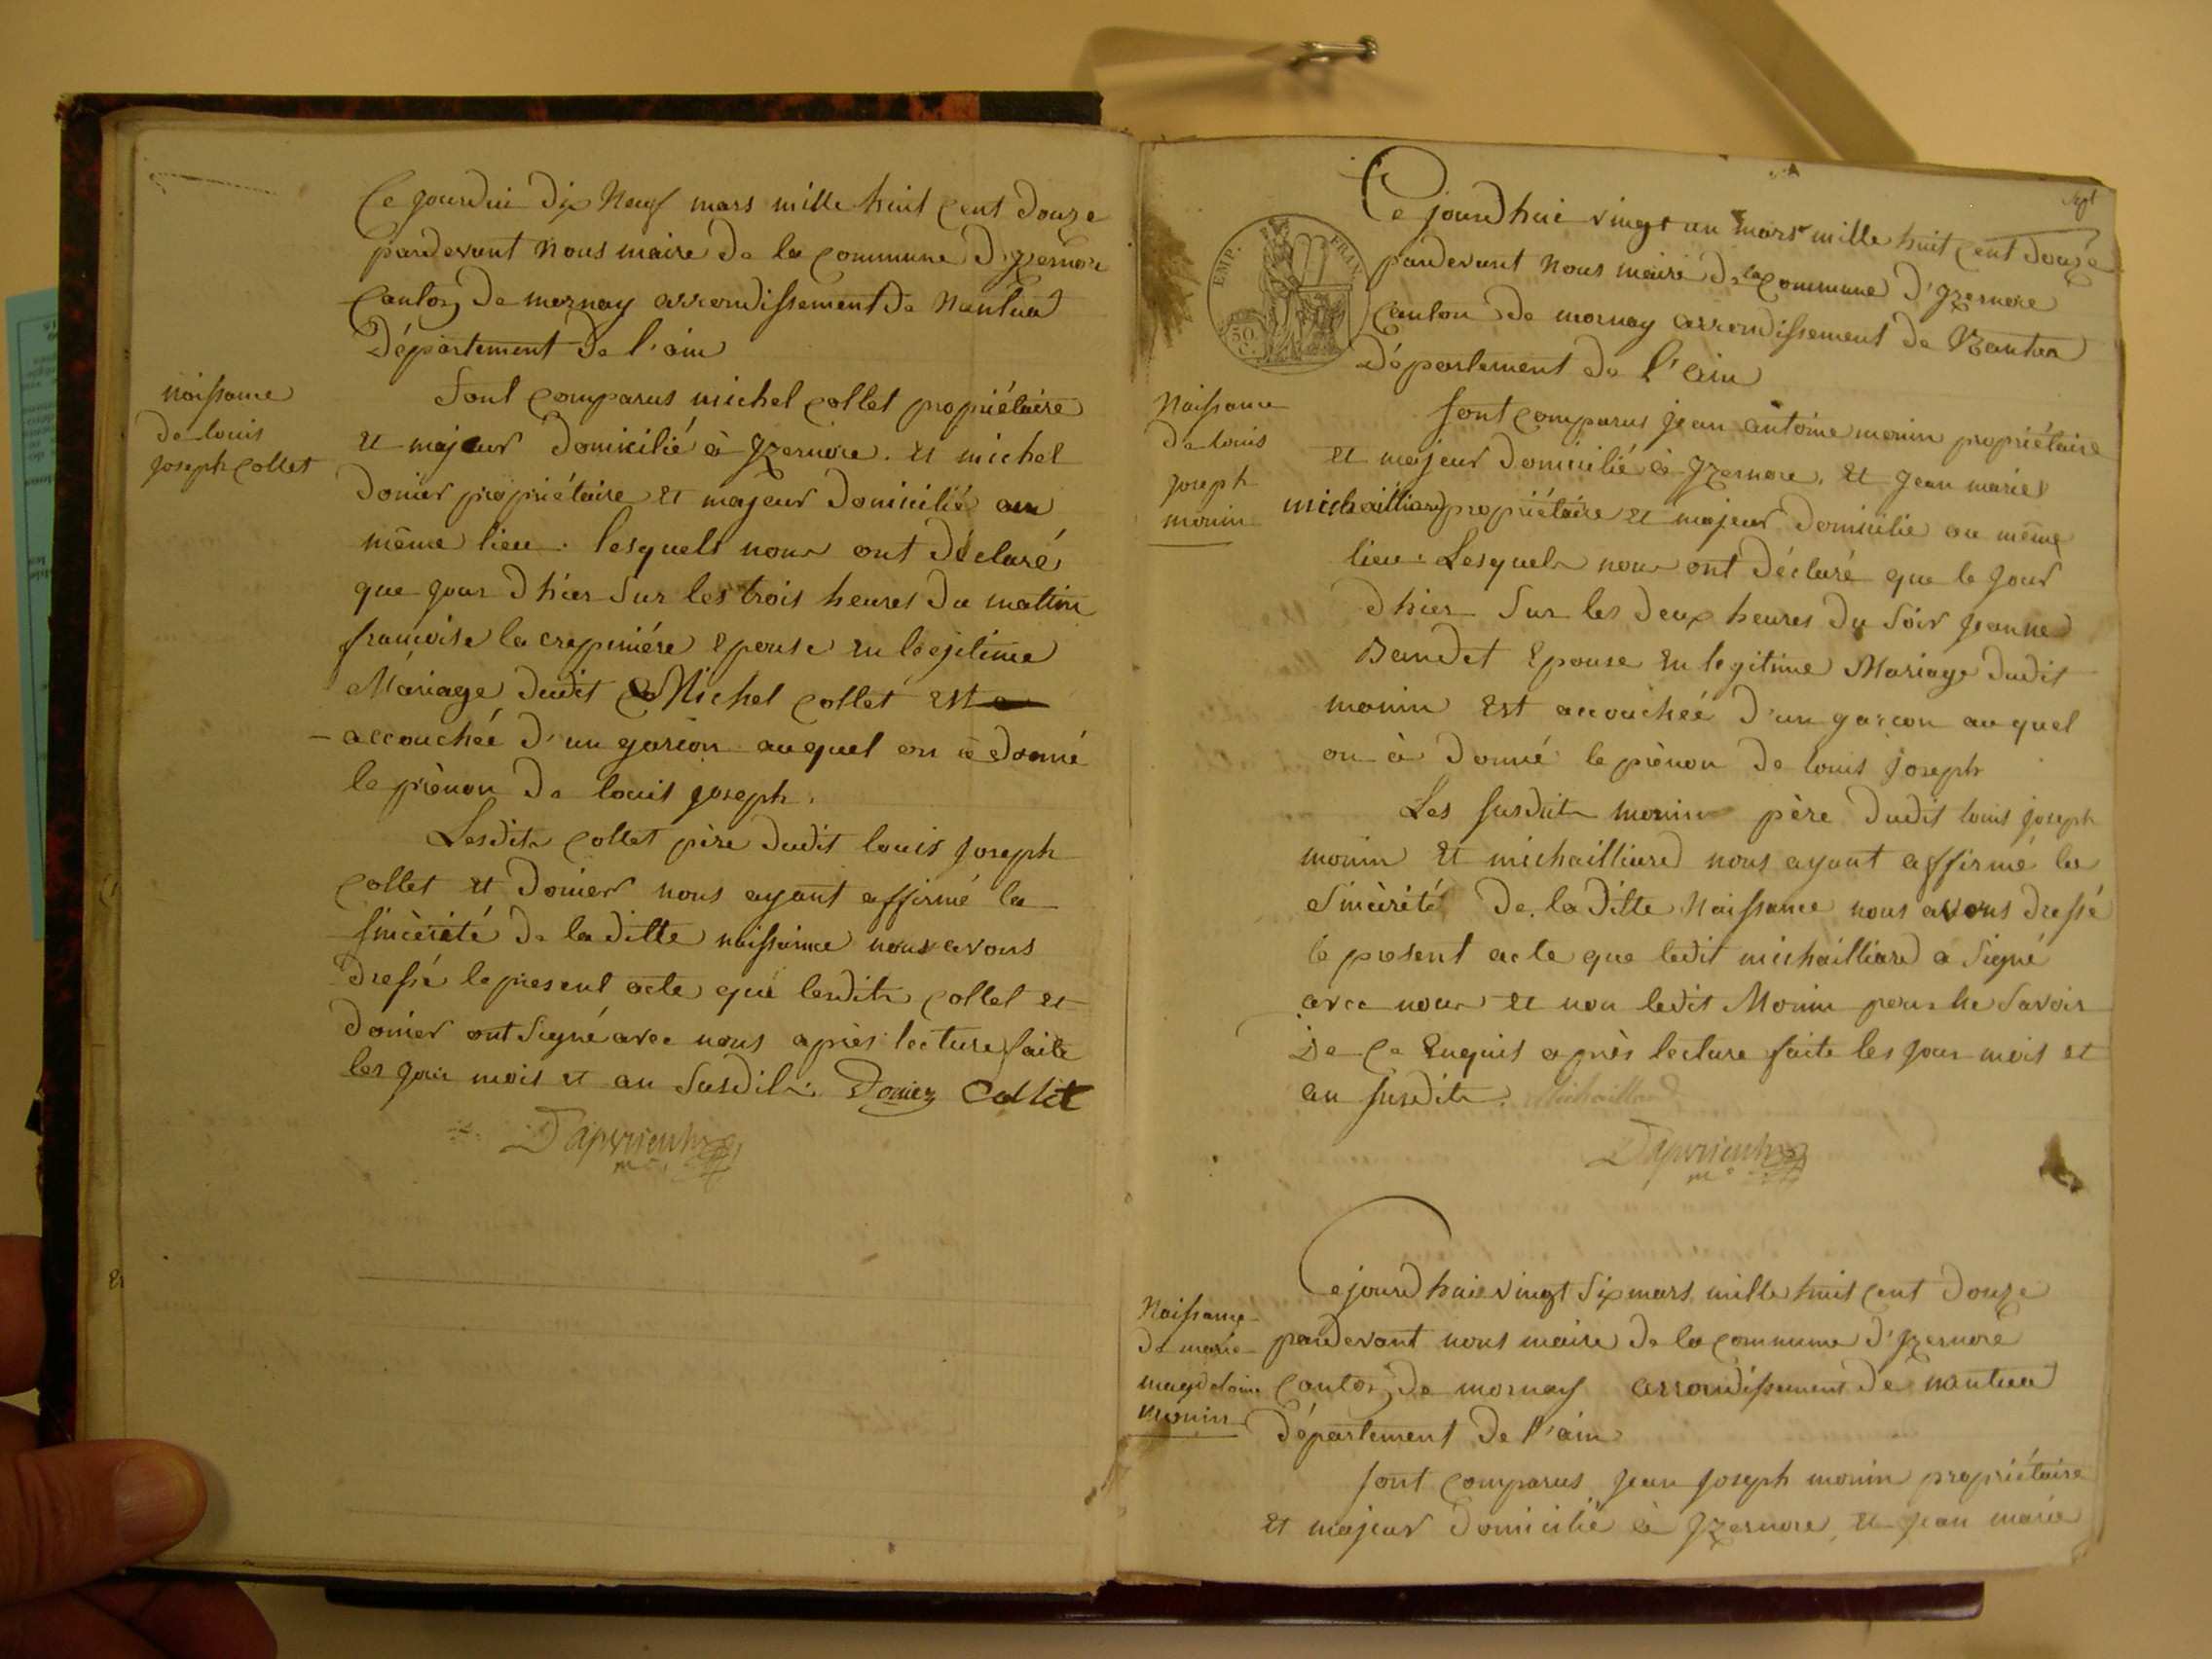 Ce jourdui dix Neuf mars mille huit cent douze
pardevant Nous maire de la commune d'izernore
canton de mornay arrondissement de Nantua
Département de l'ain
naissance
de louis
joseph collet
Sont comparus michel collet propriétaire
et majeur domicilié à jzernore. et michel
donier propriétaire et majeur domicilié au
même lieu. lesquels nous ont déclaré
que jour d'hier sur les trois heures du mattin
francoise la crepiniére epouse en leejitime
Mariage dudit Michel collet est
accouchéé d'un garcon auquel on à donné
le prènon de louis joseph.
Lesdits collet père dudit louis joseph
collet et donier nous ayant affirmé la
sincèrité de laditte naissance nous avons
dressé le present acte que lesdits collet et
donier ont signé avec nous après lecture faite
les jour mois et an susdits. Donier Collet
sept
EMP. FRAN.
50 C.
Ce jourdhui vingt un mars mille huit cent douze
pardevant Nous maire de la commune d'jzernore
canton de mornay arrondissement de Nantua
Département de l'ain
Naissance
de louis
joseph
monin
sont comparus jean antoine monin propriétaire
et majeur domicilié à jzernore, et jean marie
michailliard propriétaire et majeur domicilié au même
lieu. Lesquels nous ont déclaré que le jour
d'hier sur les deux heures du soir jeanne
Baudet Epouse en legitime Mariage dudit
monin est accouchéé d'un garcon auquel
on à donné le prènon de louis joseph
Les susdits monin père dudit louis joseph
monin et michailliard nous ayant affirmé la
sincèrité de laditte Naissance nous avons dressé
le present acte que ledit michailliard a signé
avec nous et non ledit Monin pour ne savoir
de ce Enquis après lecture faite les jour mois et
an susdits. Michaillard
Cejourdhuie vingt six mars mille huit cent douze
Naissance
de marie
magdelaine
monin
pardevant nous maire de la commune d'jzernore
canton de mornay arrondissement de nantua
département de l'ain
sont comparus jean joseph monin propriétaire
et majeur domicilié à jzernore, et jean marie